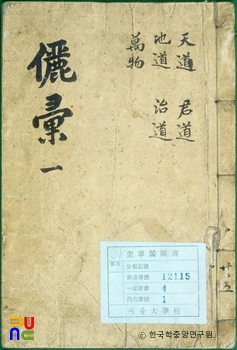 儷彙 一
天道 君道
地道 治道
萬物
奎章閣圖書
分類記號
圖書番號 12115
一冊
內 1
서울大學校
©한국학중앙연구원